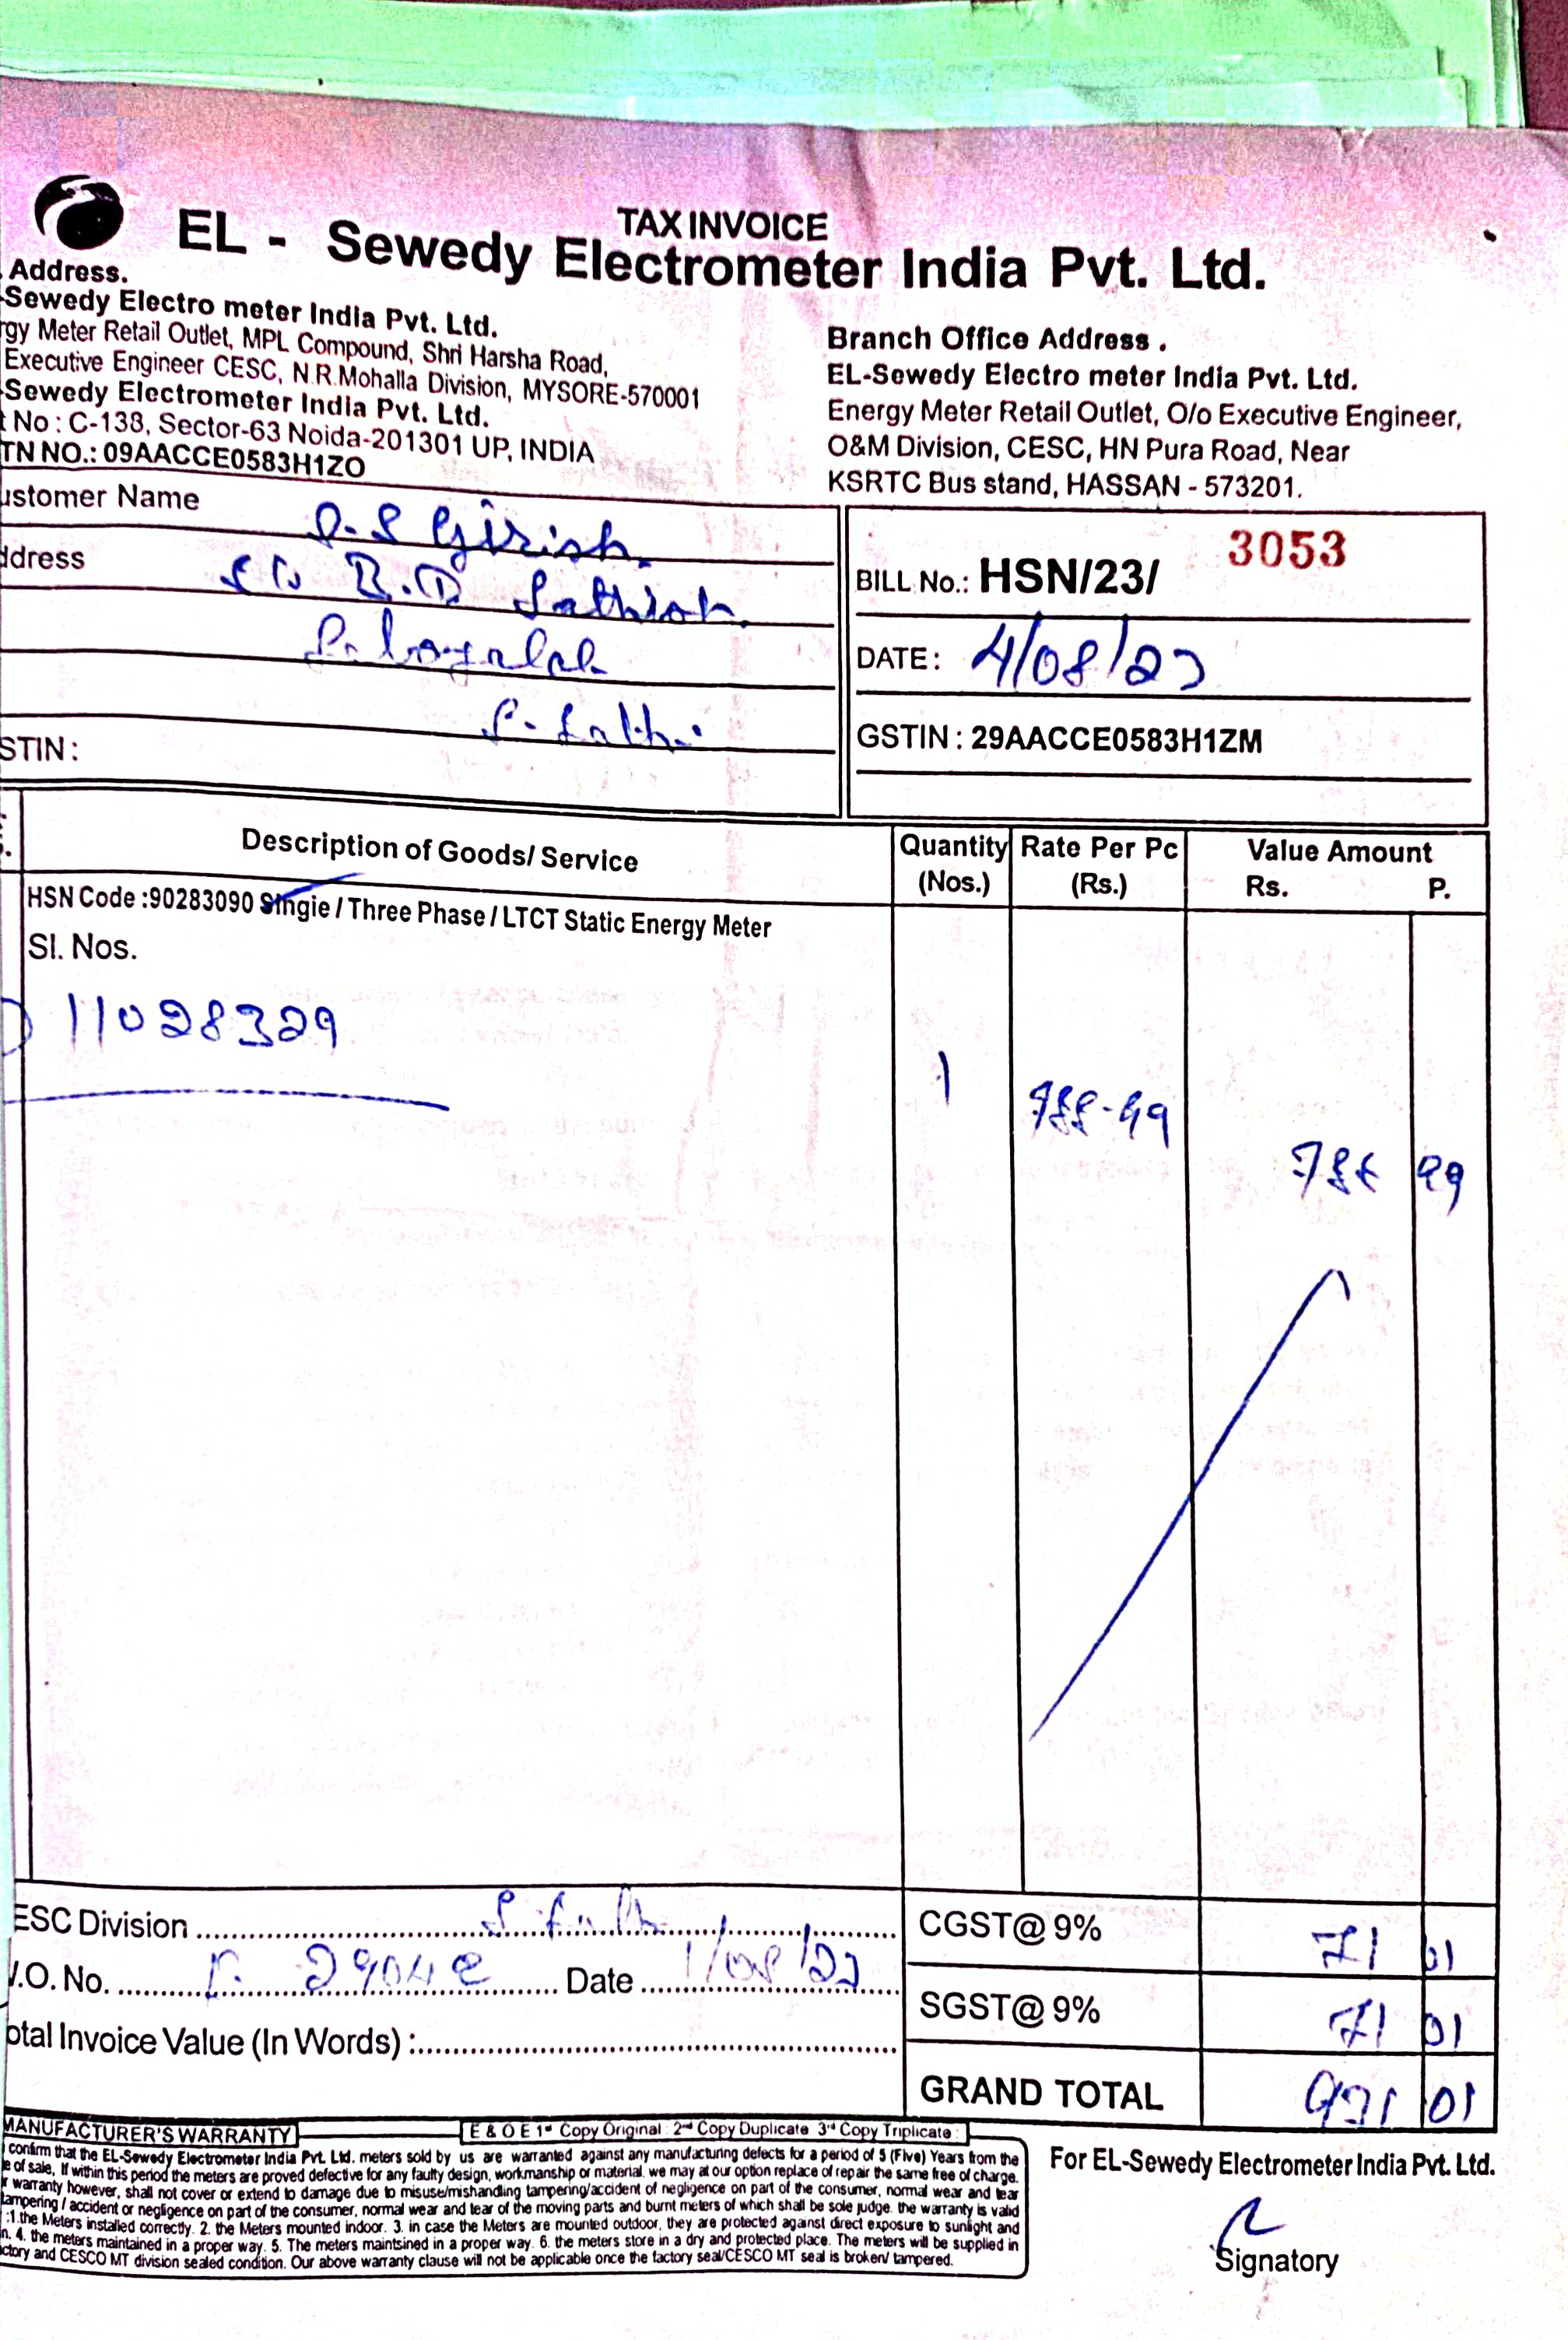 TAX INVOICE
EL - Sewedy Electrometer India Pvt. Ltd.
Address.
-Sewedy Electro meter India Pvt. Ltd.
rgy Meter Retail Outlet, MPL Compound, Shri Harsha Road,
Executive Engineer CESC, N.R.Mohalla Division, MYSORE-570001
-Sewedy Electrometer India Pvt. Ltd.
t No : C-138, Sector-63 Noida-201301 UP, INDIA
TN NO.: 09AACCE0583H1ZO
Branch Office Address .
EL-Sewedy Electro meter India Pvt. Ltd.
Energy Meter Retail Outlet, O/o Executive Engineer,
O&M Division, CESC, HN Pura Road, Near
KSRTC Bus stand, HASSAN - 573201.
ustomer Name D.S Girish
ddress S/o B.D Sathish
STIN :
BILL No.: HSN/23/ 3053
DATE : 4/08/23
GSTIN : 29AACCE0583H1ZM
Description of Goods/ Service
Quantity (Nos.)
Rate Per Pc (Rs.)
Value Amount
Rs. P.
HSN Code :90283090 Single / Three Phase / LTCT Static Energy Meter
Sl. Nos.
11028329
1 788-99 788 99
ESC Division
V.O. No. Date 1/08/23
otal Invoice Value (In Words) :
CGST@ 9% 71 01
SGST@ 9% 71 01
GRAND TOTAL 931 01
MANUFACTURER'S WARRANTY
E & O E 1st Copy Original : 2nd Copy Duplicate 3rd Copy Triplicate :
confirm that the EL-Sewedy Electrometer India Pvt. Ltd. meters sold by us are warranted against any manufacturing defects for a period of 5 (Five) Years from the
e of sale, If within this period the meters are proved defective for any faulty design, workmanship or material, we may at our option replace of repair the same free of charge.
r warranty however, shall not cover or extend to damage due to misuse/mishandling tampering/accident of negligence on part of the consumer, normal wear and tear
tampering / accident or negligence on part of the consumer, normal wear and tear of the moving parts and burnt meters of which shall be sole judge. the warranty is valid
:1.the Meters installed correctly. 2. the Meters mounted indoor. 3. in case the Meters are mounted outdoor, they are protected against direct exposure to sunlight and
n. 4. the meters maintained in a proper way. 5. The meters maintsined in a proper way. 6. the meters store in a dry and protected place. The meters will be supplied in
ctory and CESCO MT division sealed condition. Our above warranty clause will not be applicable once the factory seal/CESCO MT seal is broken/ tampered.
For EL-Sewedy Electrometer India Pvt. Ltd.
Signatory